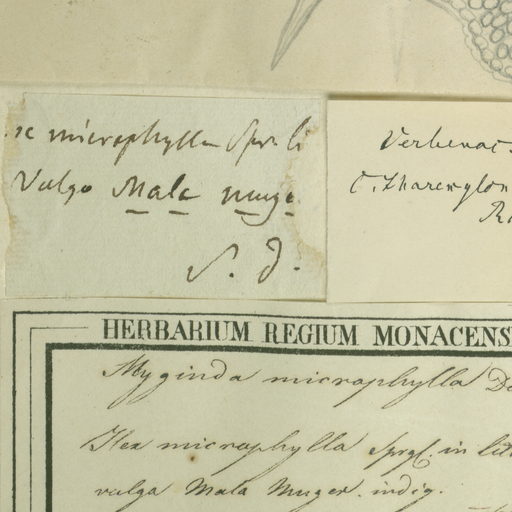 microphylla Spr. li
Vulgo Mala muge
S. d.
Verbenac.
C. Tharexylon
HERBARIUM REGIUM MONACENS
Myginda microphylla De
Ilex microphylla Sprgl. in litt
vulga Mala Muger. indig.